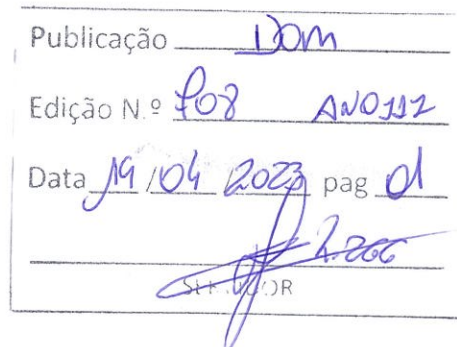 Publicação DOM
Edição N.º 708 ANO III
Data 19 / 04 / 2023 pag 01
2.266
SERVIDOR